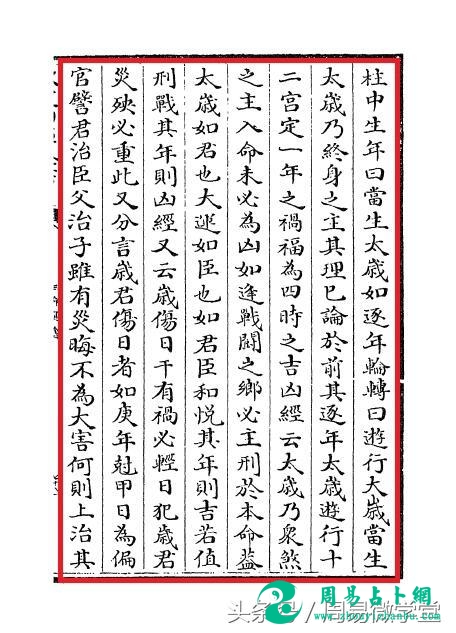 柱中生年曰當生太歲如逐年輪轉曰遊行大歲當生
太歲乃終身之主其理已論於前其逐年太歲遊行十
二宫定一年之禍福為四時之吉凶經云太歲乃衆煞
之主入命未必為凶如逢戰鬭之鄉必主刑於本命葢
太歲如君也大運如臣也如君臣和悅其年則吉若值
刑戰其年則凶經又云歲傷日干有禍必輕日犯歲君
災殃必重此又分言歲君傷日者如庚年尅甲日為偏
官譬君治臣父治子雖有災晦不為大害何則上治其
周易占卜網
头条号 / 周易微学堂